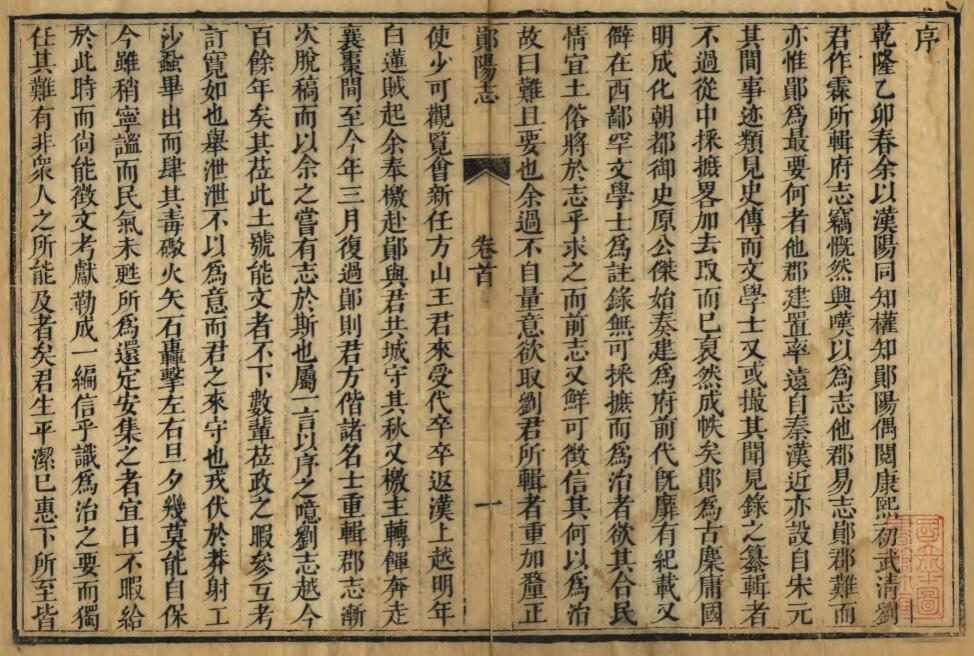 序
乾隆乙卯春余以漢陽同知權知鄖陽偶閱康熙初武清劉
君作霖所輯府志竊慨然興嘆以為志他郡易志鄖郡難而
亦惟鄖為最要何者他郡建置率遠自秦漢近亦設自宋元
其間事迹類見史傳而文學士又或撮其聞見錄之纂輯者
不過從中採摭畧加去取而已裒然成帙矣鄖為古麇庸國
明成化朝都御史原公傑始奏建為府前代旣靡有紀載又
僻在西鄙罕文學士為註錄無可採摭而為治者欲其合民
情宜土俗將於志乎求之而前志又鮮可徵信其何以為治
故曰難且要也余過不自量意欲取劉君所輯者重加釐正
鄖陽志 卷首 一
使少可觀覽會新任方山王君來受代卒卒返漢上越明年
白蓮賊起余奉檄赴鄖與君共城守其秋又檄主轉餫奔走
襄棗間至今年三月復過鄖則君方偕諸名士重輯郡志漸
次脫稿而以余之嘗有志於斯也屬一言以序之噫劉志越今
百餘年矣其莅此土號能文者不下數輩莅政之暇參互考
訂寬如也舉泄泄不以為意而君之來守也戎伏於莽射工
沙蝨畢出而肆其毒礮火矢石轟擊左右旦夕幾莫能自保
今雖稍寧謐而民氣未甦所為還定安集之者宜日不暇給
於此時而尙能徵文考獻勒成一編信乎識為治之要而獨
任其難有非衆人之所能及者矣君生平潔已惠下所至皆